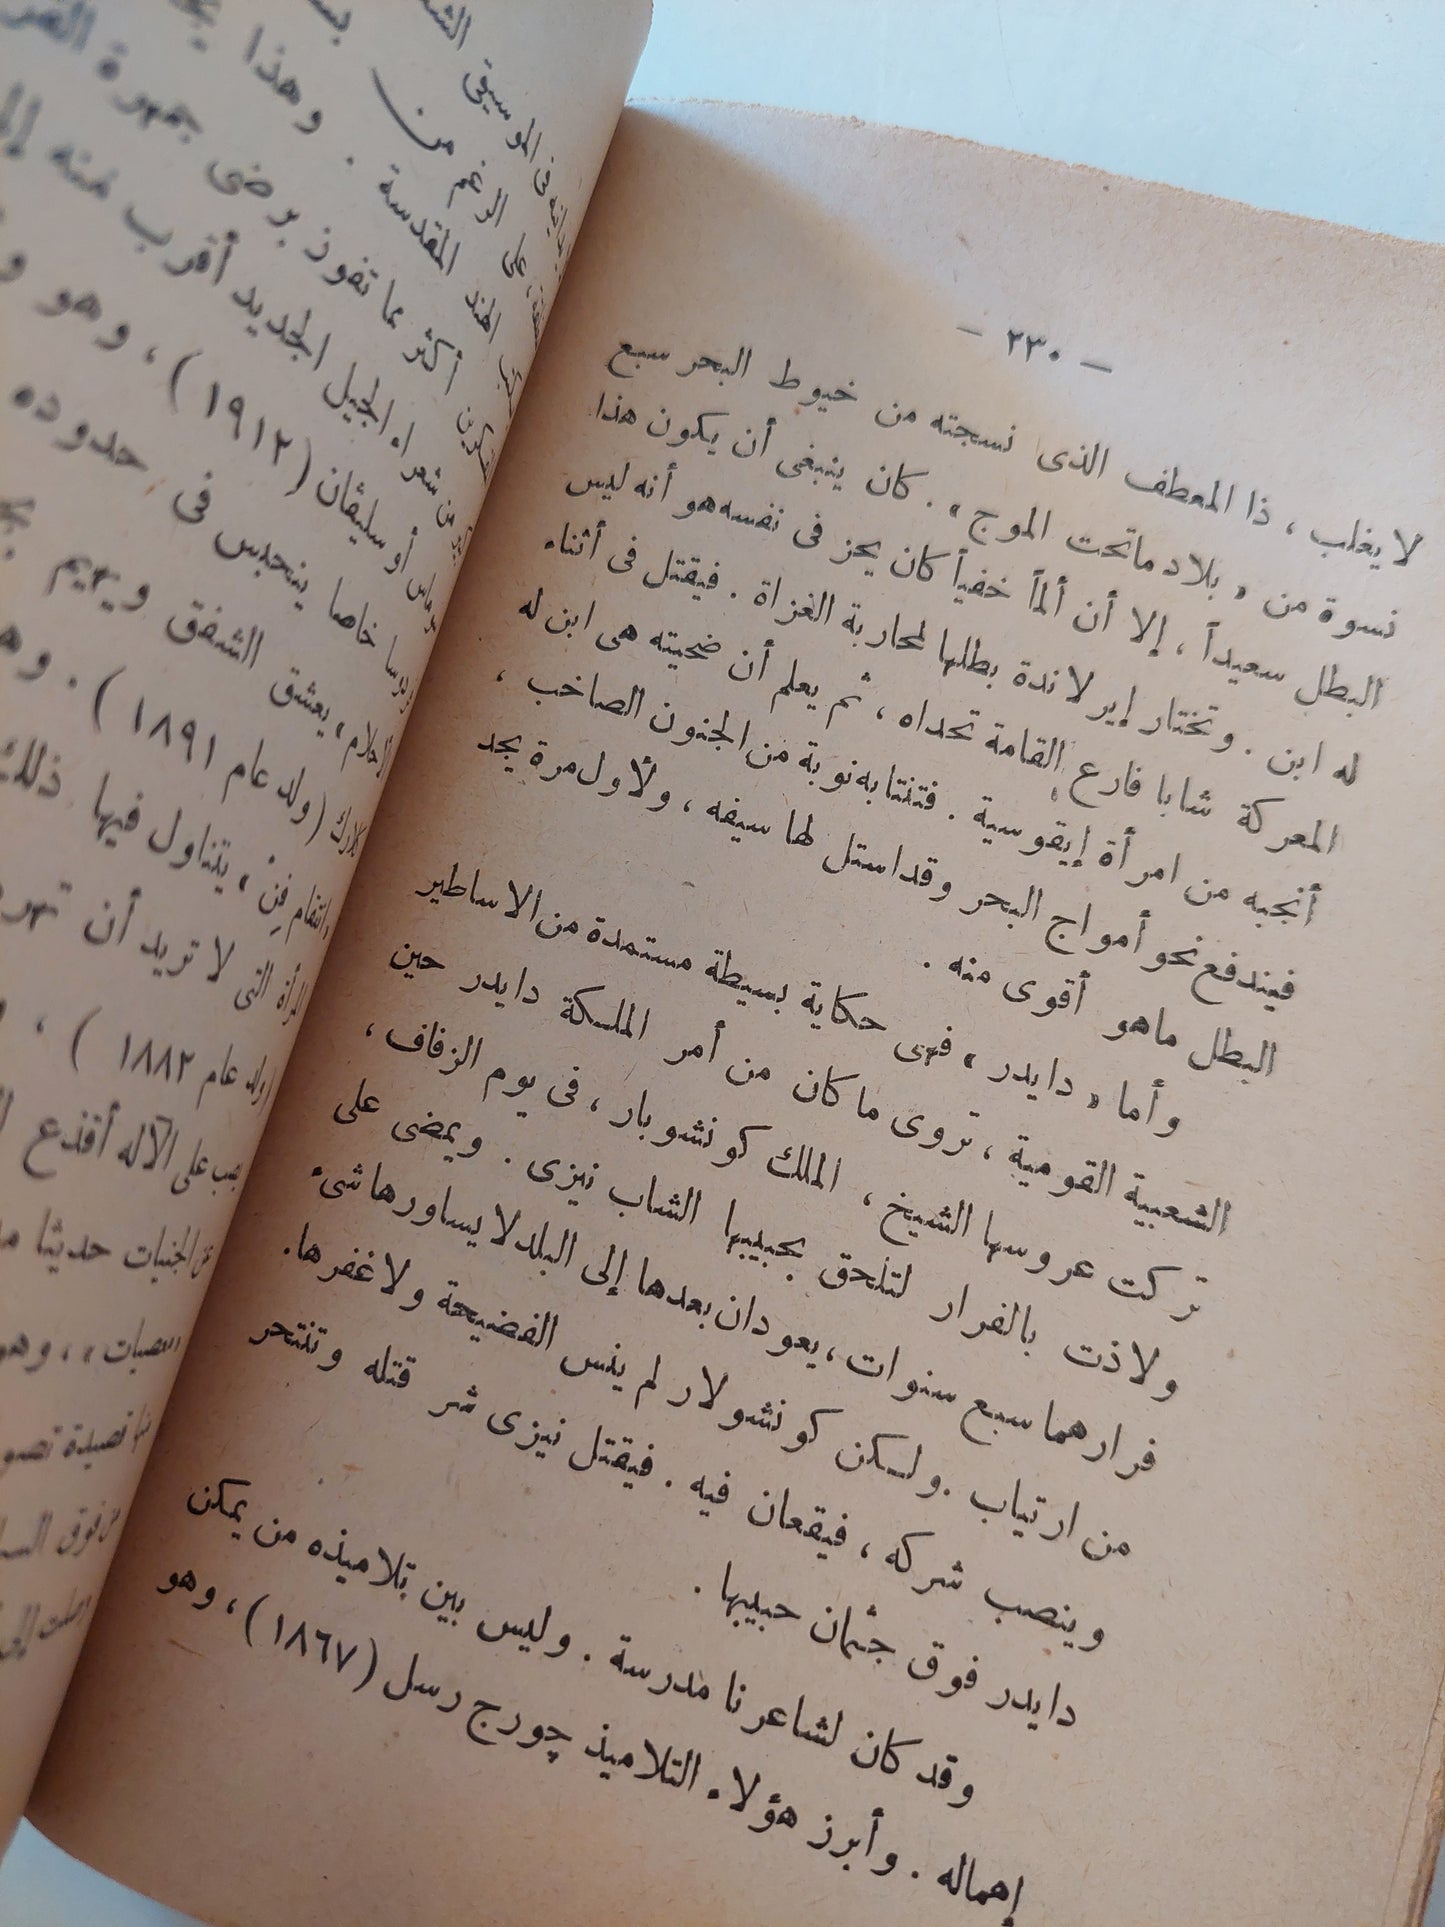 — ٢٣٠ —
لا يغلب ، ذا المعطف الذى نسجته من خيوط البحر سبع
نسوة من « بلاد ماتحت الموج » . كان ينبغى أن يكون هذا
البطل سعيداً ، إلا أن ألماً خفياً كان يحز فى نفسه هو أنه ليس
له ابن . وتختار إيرلاندة بطلها لمحاربة الغزاة . فيقتل فى أثناء
المعركة شابا فارع القامة تحداه ، ثم يعلم أن ضحيته هى ابن له
أنجبه من امرأة إيقوسية . فتنتابه نوبة من الجنون الصاخب ،
فيندفع نحو أمواج البحر وقد استل لها سيفه ، ولأول مرة يجد
البطل ماهو أقوى منه .
وأما « دايدر » فهى حكاية بسيطة مستمدة من الاساطير
الشعبية القومية ، تروى ما كان من أمر الملكة دايدر حين
تركت عروسها الشيخ ، الملك كونشوبار ، فى يوم الزفاف ،
ولاذت بالفرار لتلحق بحبيبها الشاب نيزى . ويمضى على
فرارهما سبع سنوات ، يعودان بعدها إلى البلد لا يساورها شىء
من ارتياب . ولكن كونشولار لم ينس الفضيحة ولا غفرها .
وينصب شركه ، فيقعان فيه . فيقتل نيزى شر قتله وتنتحر
دايدر فوق جثمان حبيبها .
وقد كان لشاعرنا مدرسة . وليس بين تلاميذه من يمكن
إهماله . وأبرز هؤلاء التلاميذ چورج رسل (١٨٦٧) ، وهو
فى الموسيقى
على الرغم من
الهند المقدسة . وهذا
أكثر مما تفوز برضى جمهرة
من شعراء الجيل الجديد أقرب منه
أو سليڤان (١٩١٢) ، وهو
خاصا ينحبس فى حدوده
يعشق الشفق ويهيم
كلارك (ولد عام ١٨٩١) .
انتقام فِنْ » يتناول فيها ذلك
المرأة التى لا تريد أن
ولد عام ١٨٨٢ ) ،
على الآله أقذع
الجنيات حديثا
قصيدة
من فوق